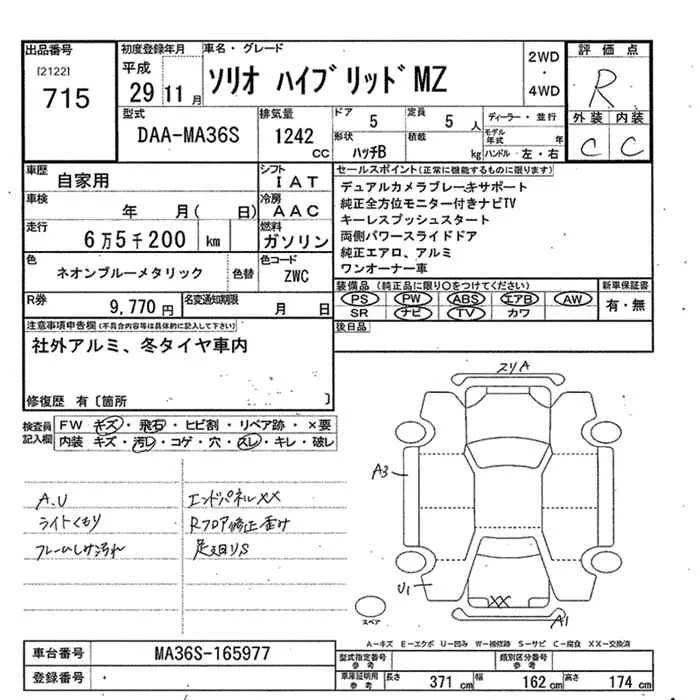 出品番号
[2122]
715
初度登録年月
平成
29 11 月
車名・グレード
ソリオ ハイブリッドMZ
2WD
・
4WD
評価点
R
外装 内装
C C
型式
DAA-MA36S
排気量
1242 cc
ドア
5
定員
5 人
形状
ハッチB
積載
kg
ディーラー・並行
モデル年式 年
ハンドル 左・右
車歴
自家用
シフト
IAT
車検
年 月( 日)
冷房
AAC
走行
6万5千200 km
燃料
ガソリン
色
ネオンブルーメタリック
色替
色コード
ZWC
R券
9,770 円
名変通知期限
月 日
セールスポイント(正常に機能するものに限ります)
デュアルカメラブレーキサポート
純正全方位モニター付きナビTV
キーレスプッシュスタート
両側パワースライドドア
純正エアロ、アルミ
ワンオーナー車
装備品(純正品に限り○をつけてください)
PS PW ABS エアB AW
SR ナビ TV カワ
新車保証書
有・無
後日品
注意事項申告欄(不具合内容等は具体的に記入して下さい)
社外アルミ、冬タイヤ車内
修復歴 有〔箇所 〕
検査員記入欄
FW キズ・飛石・ヒビ割・リペア跡・×要
内装 キズ・汚レ・コゲ・穴・スレ・キレ・破レ
A.U
ライトくもり
エンドパネルXX
Rフロア修正歪み
足廻りS
スリA
A3
U1
XX
A1
スペア
A-キズ E-エクボ U-凹み W-補修跡 S-サビ C-腐食 XX-交換済
車台番号
MA36S-165977
登録番号
型式指定番号参考
類別区分番号参考
車庫証明用参考
長さ 371 cm
幅 162 cm
高さ 174 cm